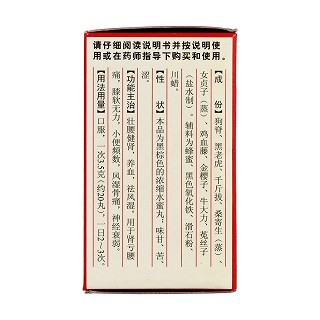 请仔细阅读说明书并按说明使
用或在药师指导下购买和使用。
【成　份】狗脊、黑老虎、千斤拔、桑寄生（蒸）、
女贞子（蒸）、鸡血藤、金樱子、牛大力、菟丝子
（盐水制）。辅料为蜂蜜、黑色氧化铁、滑石粉、
川蜡。
【性　状】本品为黑棕色的浓缩水蜜丸；味甘、苦、
涩。
【功能主治】壮腰健肾，养血，祛风湿。用于肾亏腰
痛，膝软无力，小便频数，风湿骨痛，神经衰弱。
【用法用量】口服，一次3.5克（约20丸），一日2～3次。